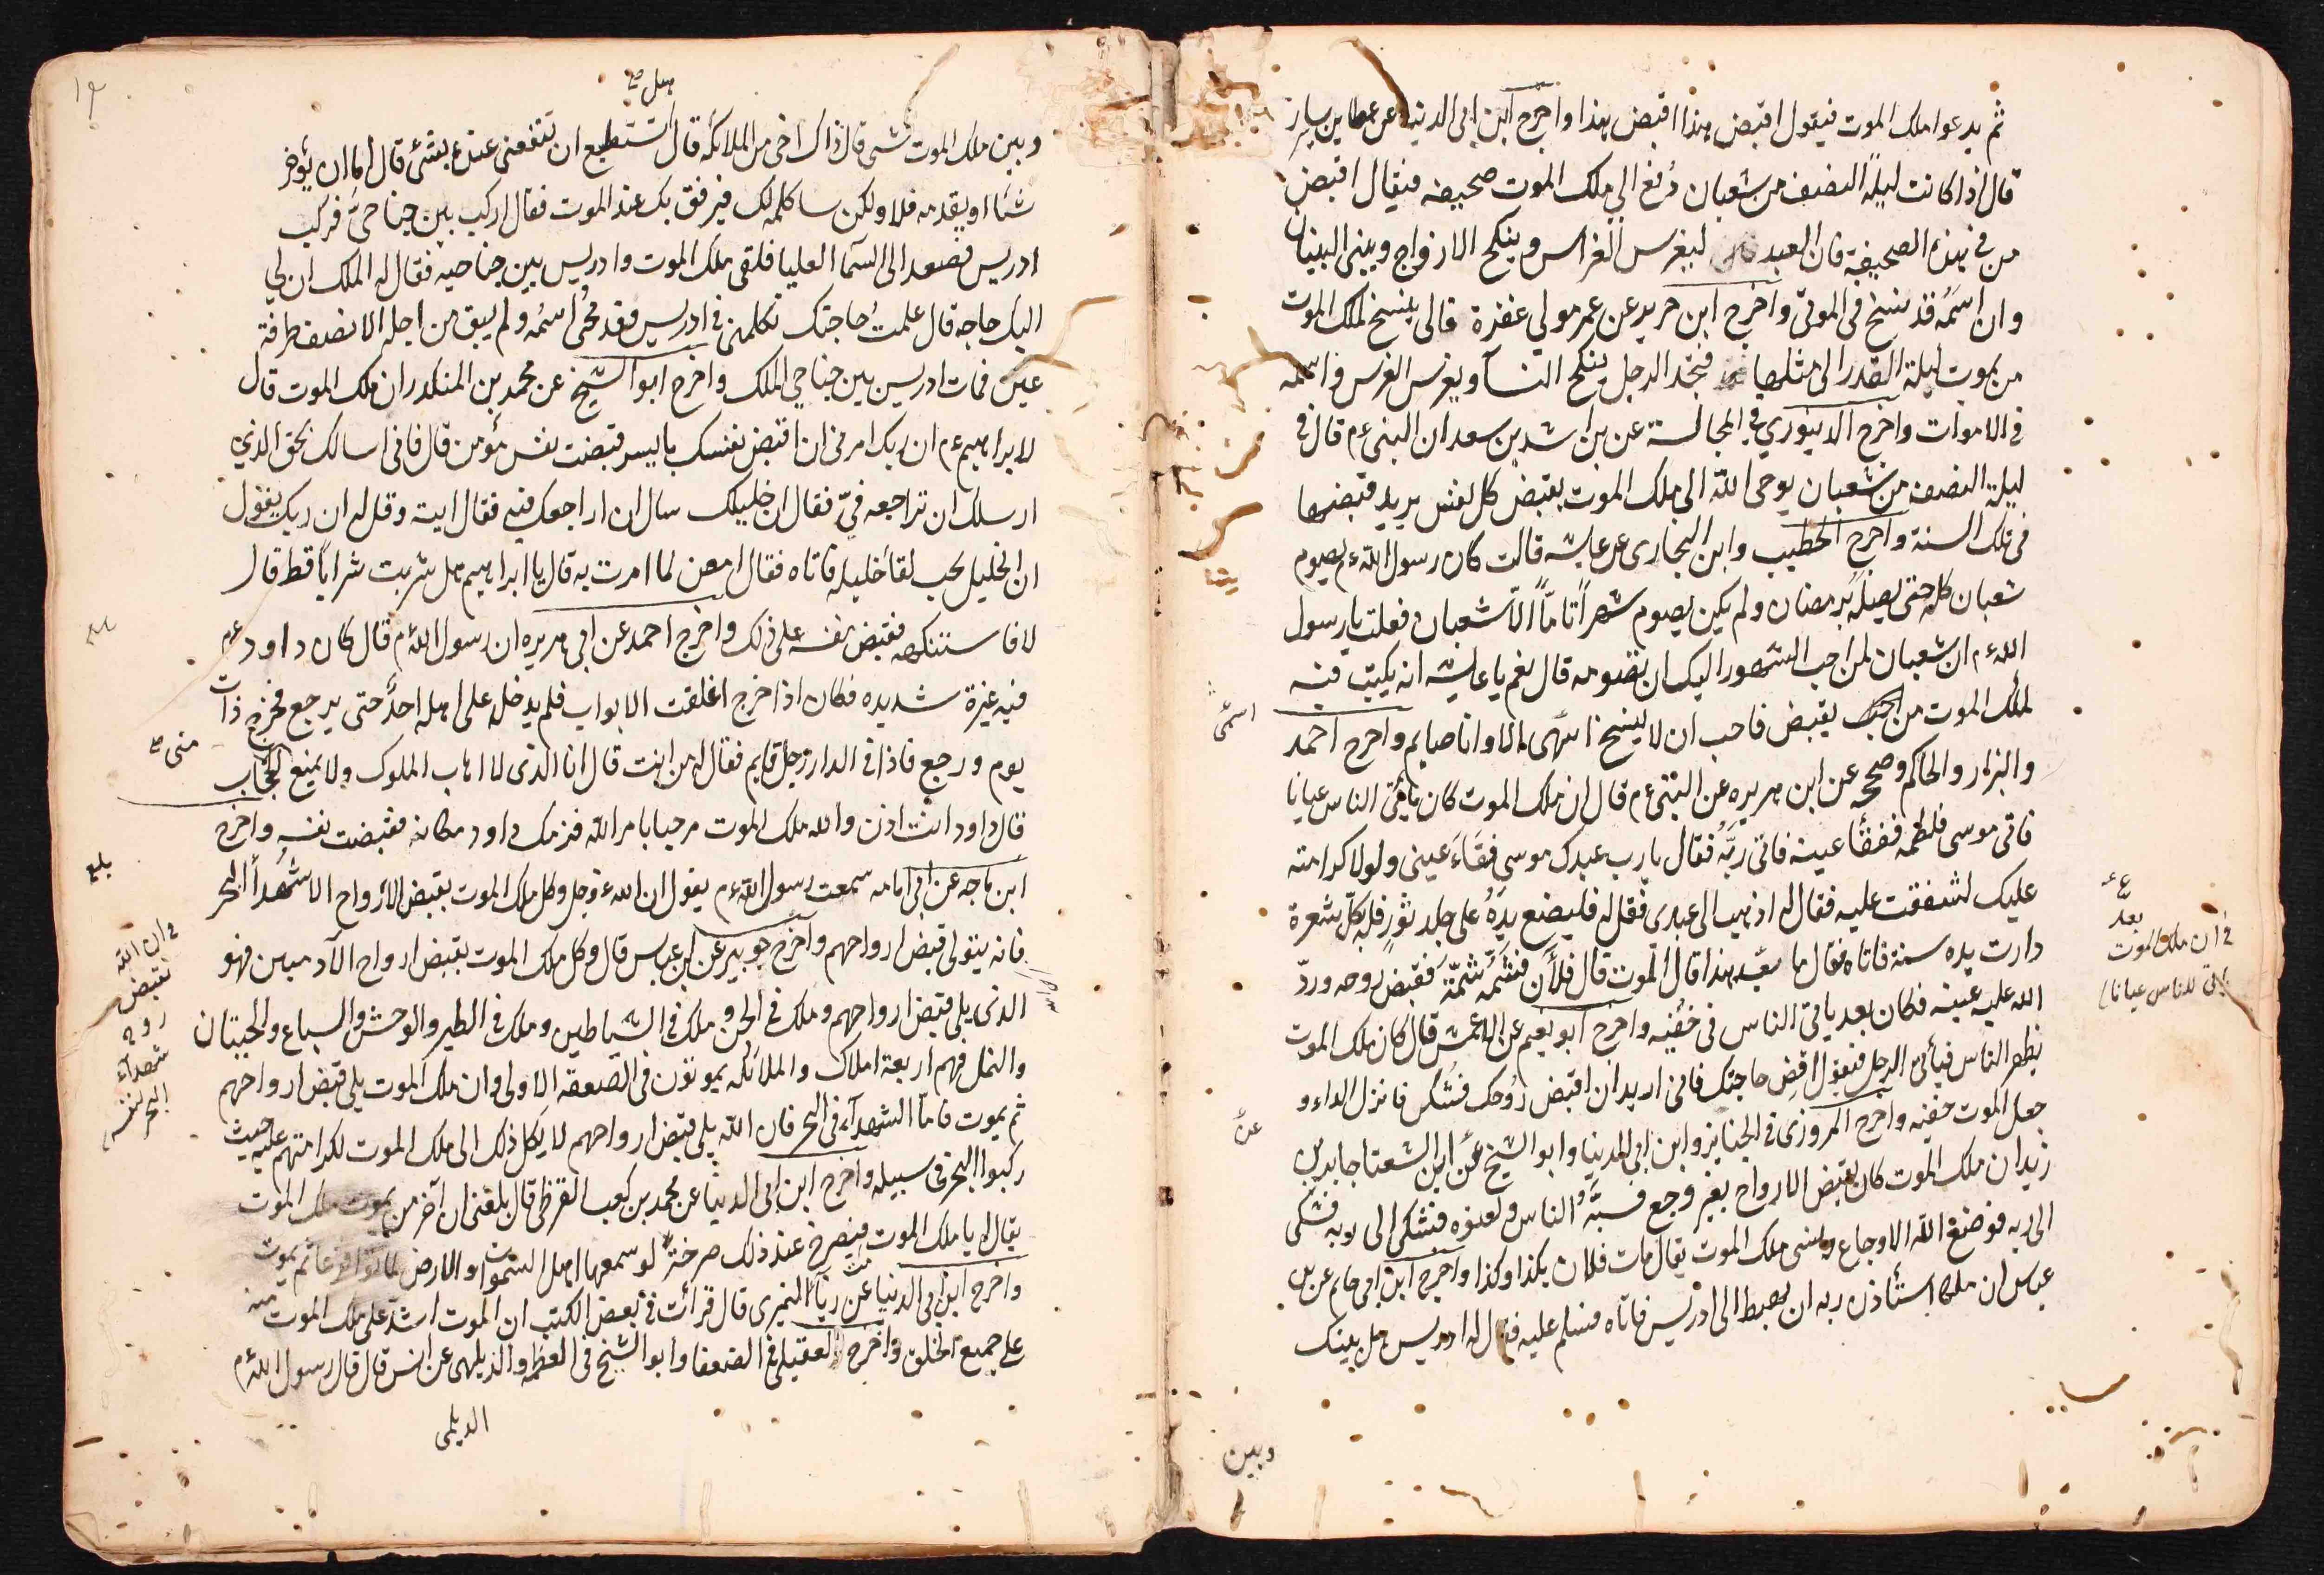 ثم يدعوا ملك الموت فيقول اقبض هذا اقبض هذا واخرج ابن ابى الدنيا عن عطا بن يسار
قال اذا كانت ليلة النصف من شعبان دُفع الي ملك الموت صحيفه فيقال اقبض
من في هذه الصحيفة فان العبد ليغرس الغراس وينكح الازواج ويبنى البنيان
وان اسمَه قد نسخ في الموتى واخرج ابن جرير عن عمر مولي غفرة قال ينسخ لملك الموت
من يموت ليلة القدر الى مثلها فتجد الرجل ينكح النسآ ويغرس الغرس واسمه
في الاموات واخرج الدينوري في المجالسة عن راشد بن سعد ان النبى ءم قال في
ليلة النصف من شعبان يوحى الله الى ملك الموت بقبض كل نفس يريد قبضها
في تلك السنة واخرج الخطيب وابن النجارى عن عايشه قالت كان رسول الله ءم يصوم
شعبان كله حتى يصله برمضان ولم يكن يصوم شهراً تامّاً الّا شعبان فقلت يا رسول
الله ءم ان شعبان لمن احب الشهور اليك ان تصومه قال نعم يا عايشه انه يكتب فيه
لملك الموت من يقبض فاحب ان لا ينسخ اسمى الا وانا صايم واخرج احمد
اسمى
والبزار والحاكم وصححه عن ابى هريره عن النبى ءم قال ان ملك الموت كان يأتى الناس عيانا
فاتى موسى فلطمه ففقأ عينه فاتى ربَّه فقال يا رب عبدك موسى فقأَ عينى ولولا كرامته
عليك لشققت عليه فقال له اذهب الى عبدى فقل له فليضع يدَهُ على جلد ثورٍ فله بكلّ شعرة
دارت يده سنة فاتاه فقال ما بعد هذا قال الموت قال فلأن فشمّه شمّة فقبض روحه وردّ
بعد
في ان ملك الموت
يأتى للناس عيانا
الله عليه عينه فكان بعد ياتى الناس فى خفيه واخرج ابو نعيم عن الاعمش قال كان ملك الموت
يظهر للناس فيأتى الرجل فيقول اقضِ حاجتك فانى اريد ان اقبض روحك فشكى فانزل الداء و
جعل الموت خفيه واخرج المروزى فى الجنايز وابن ابى الدنيا وابو الشيخ عن ابى الشعثا جابر بن
عن
زيد ان ملك الموت كان يقبض الارواح بغير وجع فسبَّه الناس ولعنوه فشكى الى ربه فشكى
الى ربه فوضع الله الاوجاع ونسى ملك الموت يقال مات فلان بكذا وكذا واخرج ابن ابى حاتم عن ابن
عباس ان ملكا استأذن ربه ان يهبط الى ادريس فاتاه فسلم عليه فقال له ادريس هل بينك
وبين
١٩
هل
وبين ملك الموت شى قال ذاك اخى من الملائكه قال أتستطيع ان تنفعنى عنده بشئ قال اما ان يؤخر
شئا او يقدمه فلا ولكن ساكلمه لك فيرفق بك عند الموت فقال اركب بين جناحىَّ فركب
ادريس فصعد الى السمآ العليا فلقى ملك الموت وادريس بين جناحيه فقال له الملك ان لي
اليك حاجه قال علمتُ حاجتك تكلمنى فى ادريس وقد مُحى اسمُه ولم يبق من اجله الا نصف طرفة
عين فمات ادريس بين جناحي الملك واخرج ابو الشيخ عن محمد بن المنكدر ان ملك الموت قال
لابراهيم ءم ان ربك امرنى ان اقبض نفسك بايسر قبضت نفس مؤمن قال فانى اسالك بحق الذي
ارسلك ان تراجعه فيّ فقال ان خليلك سال ان اراجعك فيه فقال ايته وقل له ان ربك يقول
ان الخليل يحب لقا خليله فاتاه فقال امض لما امرت به قال يا ابراهيم هل شربت شراباً قط قال
لا فاستنكهه فقبض نفسه على ذلك واخرج احمد عن ابى هريره ان رسول الله ءم قال كان داود ءم
فيه غيرة شديده فكان اذا خرج اغلقت الابواب فلم يدخل على اهله احدٌ حتى يرجع فخرج ذات
يوم ورجع فاذا فى الدار رجل قايم فقال له من انت قال انا الذى لا اهاب الملوك ولا يمنع الحجاب
منى
قال داود انت اذن والله ملك الموت مرحبا بامر الله فزمك داود مكانه فقبضت نفسه واخرج
ابن ماجه عن ابى امامه سمعت رسول الله ءم يقول ان الله عز وجل وكل ملك الموت بقبض الارواح الا شهدآ البحر
بلغ
فانه يتولى قبض ارواحهم واخرج جويبر عن ابن عباس قال وكل ملك الموت بقبض ارواح الآدميين فهو
في ان الله
يقبض
روح
شهدآء
البحر بنفسه
الذى يلى قبض ارواحهم وملك فى الجن وملك فى الشياطين وملك فى الطير والوحش والسباع والحيتان
والنمل فهم اربعة املاك والملائكه يموتون فى الصعقه الاولى وان ملك الموت يلى قبض ارواحهم
ثم يموت فاما الشهدآء فى البحر فان الله يلى قبض ارواحهم لا يكل ذلك الى ملك الموت لكرامتهم عليه حيث
ركبوا البحر فى سبيله واخرج ابن ابى الدنيا عن محمد بن كعب القرظى قال بلغنى ان آخر من يموت ملك الموت
يقال له يا ملك الموت فيصرخ عند ذلك صرخةً لو سمعها اهل السموات والارض لماتوا فزعا ثم يموت
واخرج ابن ابى الدنيا عن زياد النميرى قال قرأت فى بعض الكتب ان الموت اشدّ على ملك الموت منه
على جميع الخلق واخرج العقيلى فى الضعفا وابو الشيخ فى العظمه والديلمى عن انس قال قال رسول الله ءم
الديلمى